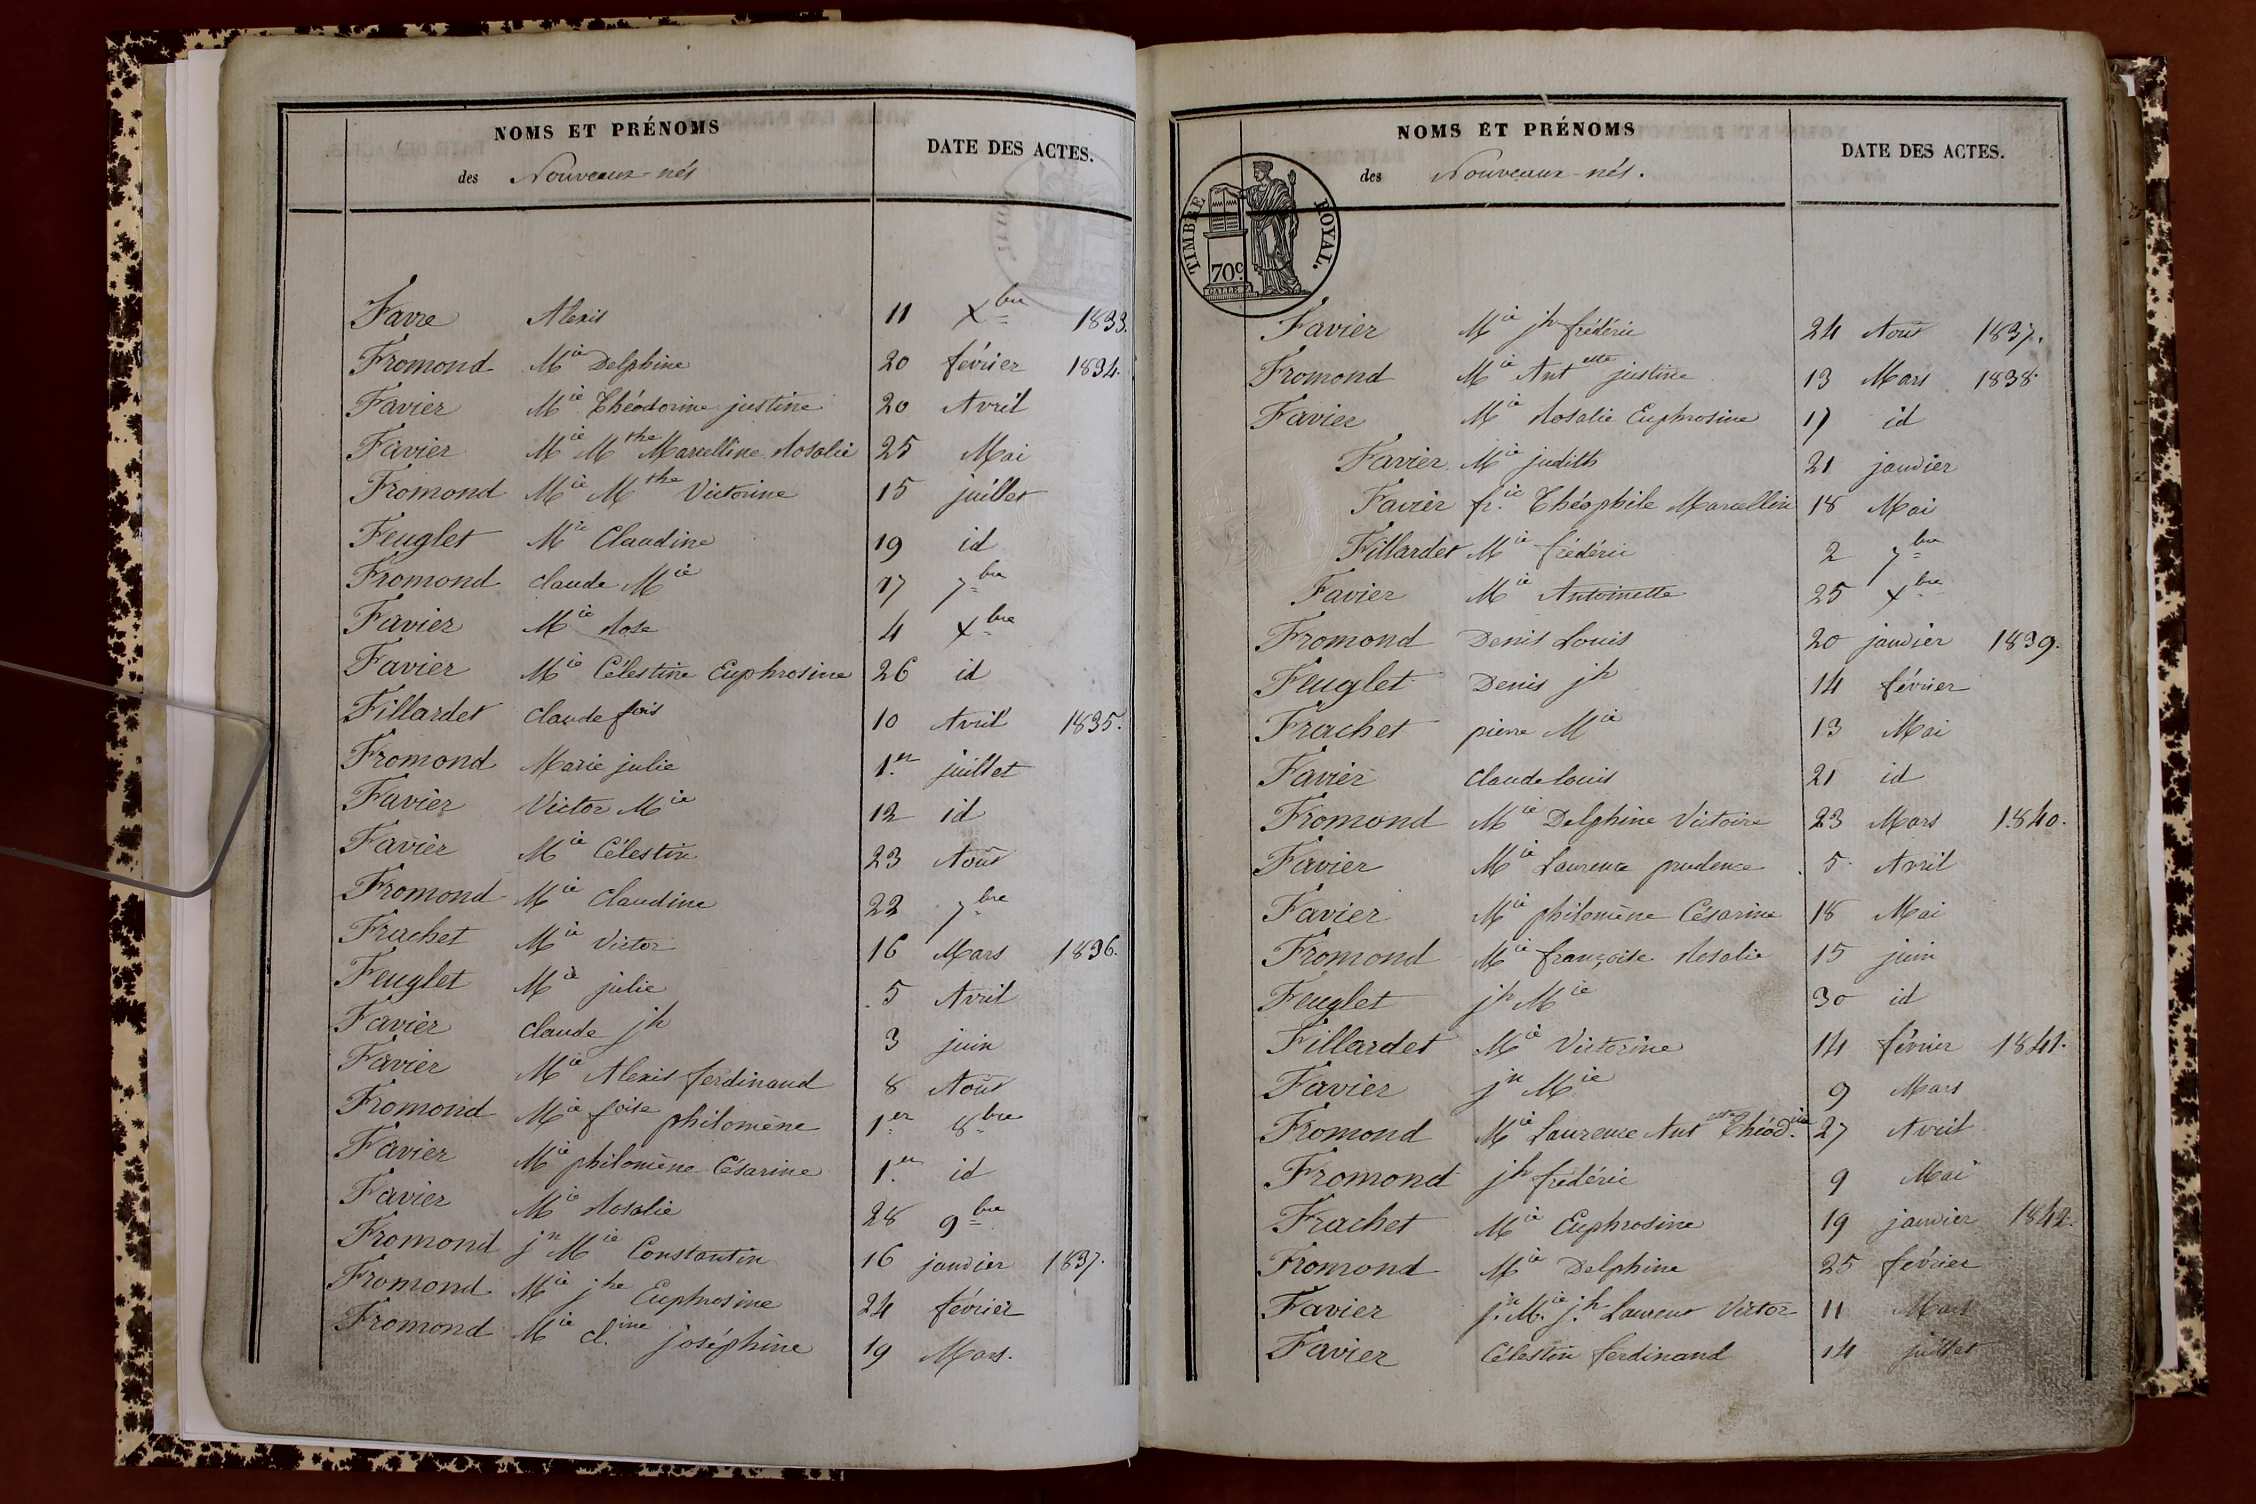 NOMS ET PRÉNOMS
DATE DES ACTES.
des Nouveaux-nés
Favre Alexis 11 Xbre 1833.
Fromond Mie Delphine 20 février 1834.
Favier Mie Théodorine justine 20 Avril
Favier Mie Mthe Marcelline Rosalie 25 Mai
Fromond Mie Mthe Victorine 15 juillet
Feuglet Mie Claudine 19 id
Fromond claude Mie 17 7bre
Favier Mie Rose 4 Xbre
Favier Mie Célestine Euphrosine 26 id
Fillardet claude fois 10 Avril 1835.
Fromond Marie julie 1.er juillet
Favier Victor Mie 12 id
Favier Mie Célestin 23 Août
Fromond Mie Claudine 22 7bre
Frachet Mie Victor 16 Mars 1836.
Feuglet Mie julie 5 Avril
Favier claude jh 3 juin
Favier Mie Alexis ferdinand 8 Août
Fromond Mie foise philomène 1er 8bre
Favier Mie philomène Césarine 1.er id
Favier Mie Rosalie 28 9bre
Fromond jn Mie Constantin 16 janvier 1837.
Fromond Mie jhe Euphrosine 24 février
Fromond Mie cl.ine joséphine 19 Mars.
NOMS ET PRÉNOMS
DATE DES ACTES.
des Nouveaux-nés.
TIMBRE ROYAL.
70c.
Favier Mie jh frédéric 24 Août 1837.
Fromond Mie Antette justine 13 Mars 1838.
Favier Mie Rosalie Euphrosine 17 id
Favier Mie judith 21 janvier
Favier fr. ie Théophile Marcellin 18 Mai
Fillardet Mie frédéric 2 7bre
Favier Mie Antoinette 25 Xbre
Fromond Denis Louis 20 janvier 1839.
Feuglet Denis jh 14 février
Frachet pierre Mie 13 Mai
Favier claude louis 21 id
Fromond Mie Delphine Victoire 23 Mars 1840.
Favier Mie Laurence prudence 5 Avril
Favier Mie philomène Césarine 18 Mai
Fromond Mie françoise Rosalie 15 juin
Feuglet jh Mie 30 id
Fillardet Mie Victorine 14 février 1841.
Favier jn Mie 9 Mars
Fromond Mie Laurence Antette Théod.ine 27 Avril
Fromond jh frédéric 9 Mai
Frachet Mie Euphrosine 19 janvier 1842.
Fromond Mie Delphine 25 février
Favier jn. Mie. jh. Laurent Victor 11 Mars
Favier Célestin ferdinand 14 juillet